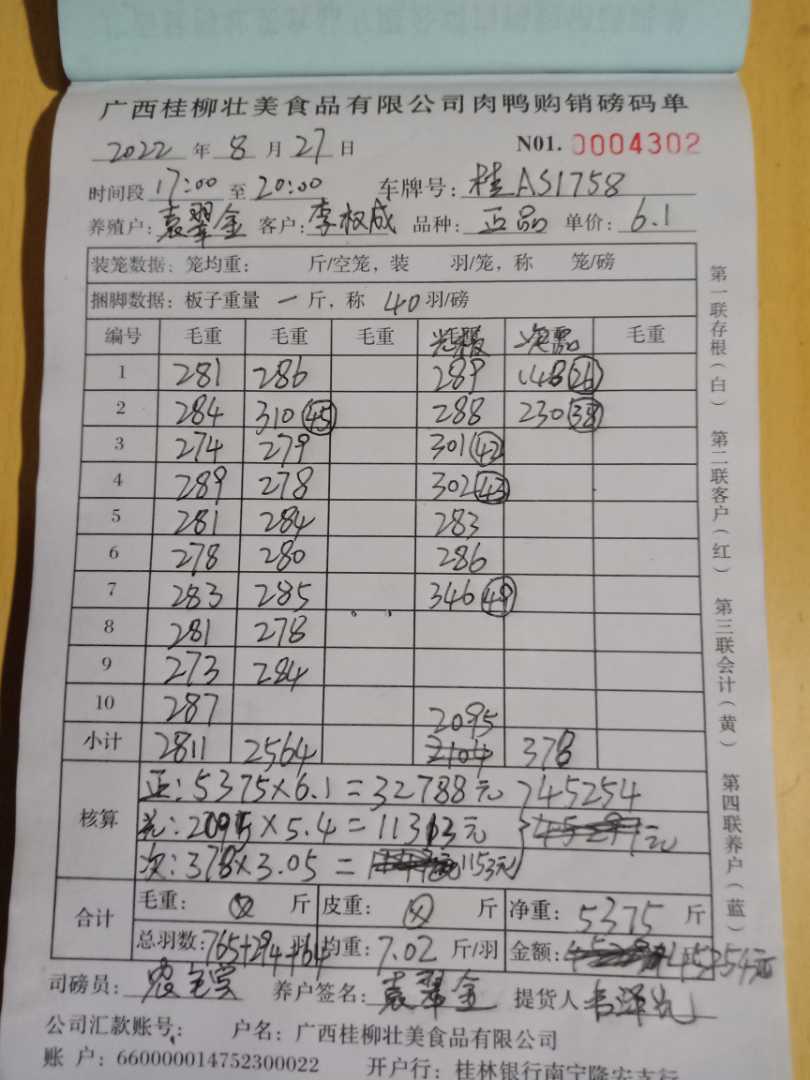 广西桂柳壮美食品有限公司肉鸭购销磅码单
2022 年 8 月 27 日 N01. 0004302
时间段 17:00 至 20:00 车牌号: 桂AS1758
养殖户: 袁翠金 客户: 李权成 品种: 正品 单价: 6.1
装笼数据: 笼均重: 斤/空笼, 装 羽/笼, 称 笼/磅
捆脚数据: 板子重量 一 斤, 称 40 羽/磅
编号 毛重 毛重 毛重 次品 毛重
1 281 286 289 148 26
2 284 310 45 288 230 38
3 274 279 301 42
4 289 278 302 43
5 281 284 283
6 278 280 286
7 283 285 346 49
8 281 278
9 273 284
10 287 2095
小计 2811 2564 2104 378
核算 正: 5375×6.1=32788元 45254
2095×5.4=11313元 元
次: 378×3.05= 1153元
合计 毛重: 斤 皮重: 斤 净重: 5375 斤
总羽数: 765+294+64 羽 均重: 7.02 斤/羽 金额: 45254元
司磅员: 养户签名: 袁翠金 提货人
公司汇款账号: 户名: 广西桂柳壮美食品有限公司
账 户: 660000014752300022 开户行: 桂林银行南宁隆安支行
第一联存根(白) 第二联客户(红) 第三联会计(黄) 第四联养户(蓝)